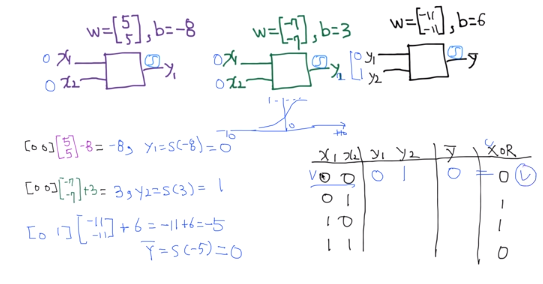 w=[5 5], b=-8
w=[-7 -7], b=3
w=[-11 -11], b=6
0 x₁ S y₁
0 x₂
0 x₁ S y₂
0 x₂
0 y₁ S ȳ
1 y₂
1
-10 0 +10
[0 0][5 5]-8=-8, y₁=S(-8)=0
[0 0][-7 -7]+3=3, y₂=S(3)=1
[0 1][-11 -11]+6=-11+6=-5
ȳ=S(-5)=0
x₁ x₂ y₁ y₂ ȳ XOR
V 0 0 0 1 0 = 0 V
0 1 1
1 0 1
1 1 0